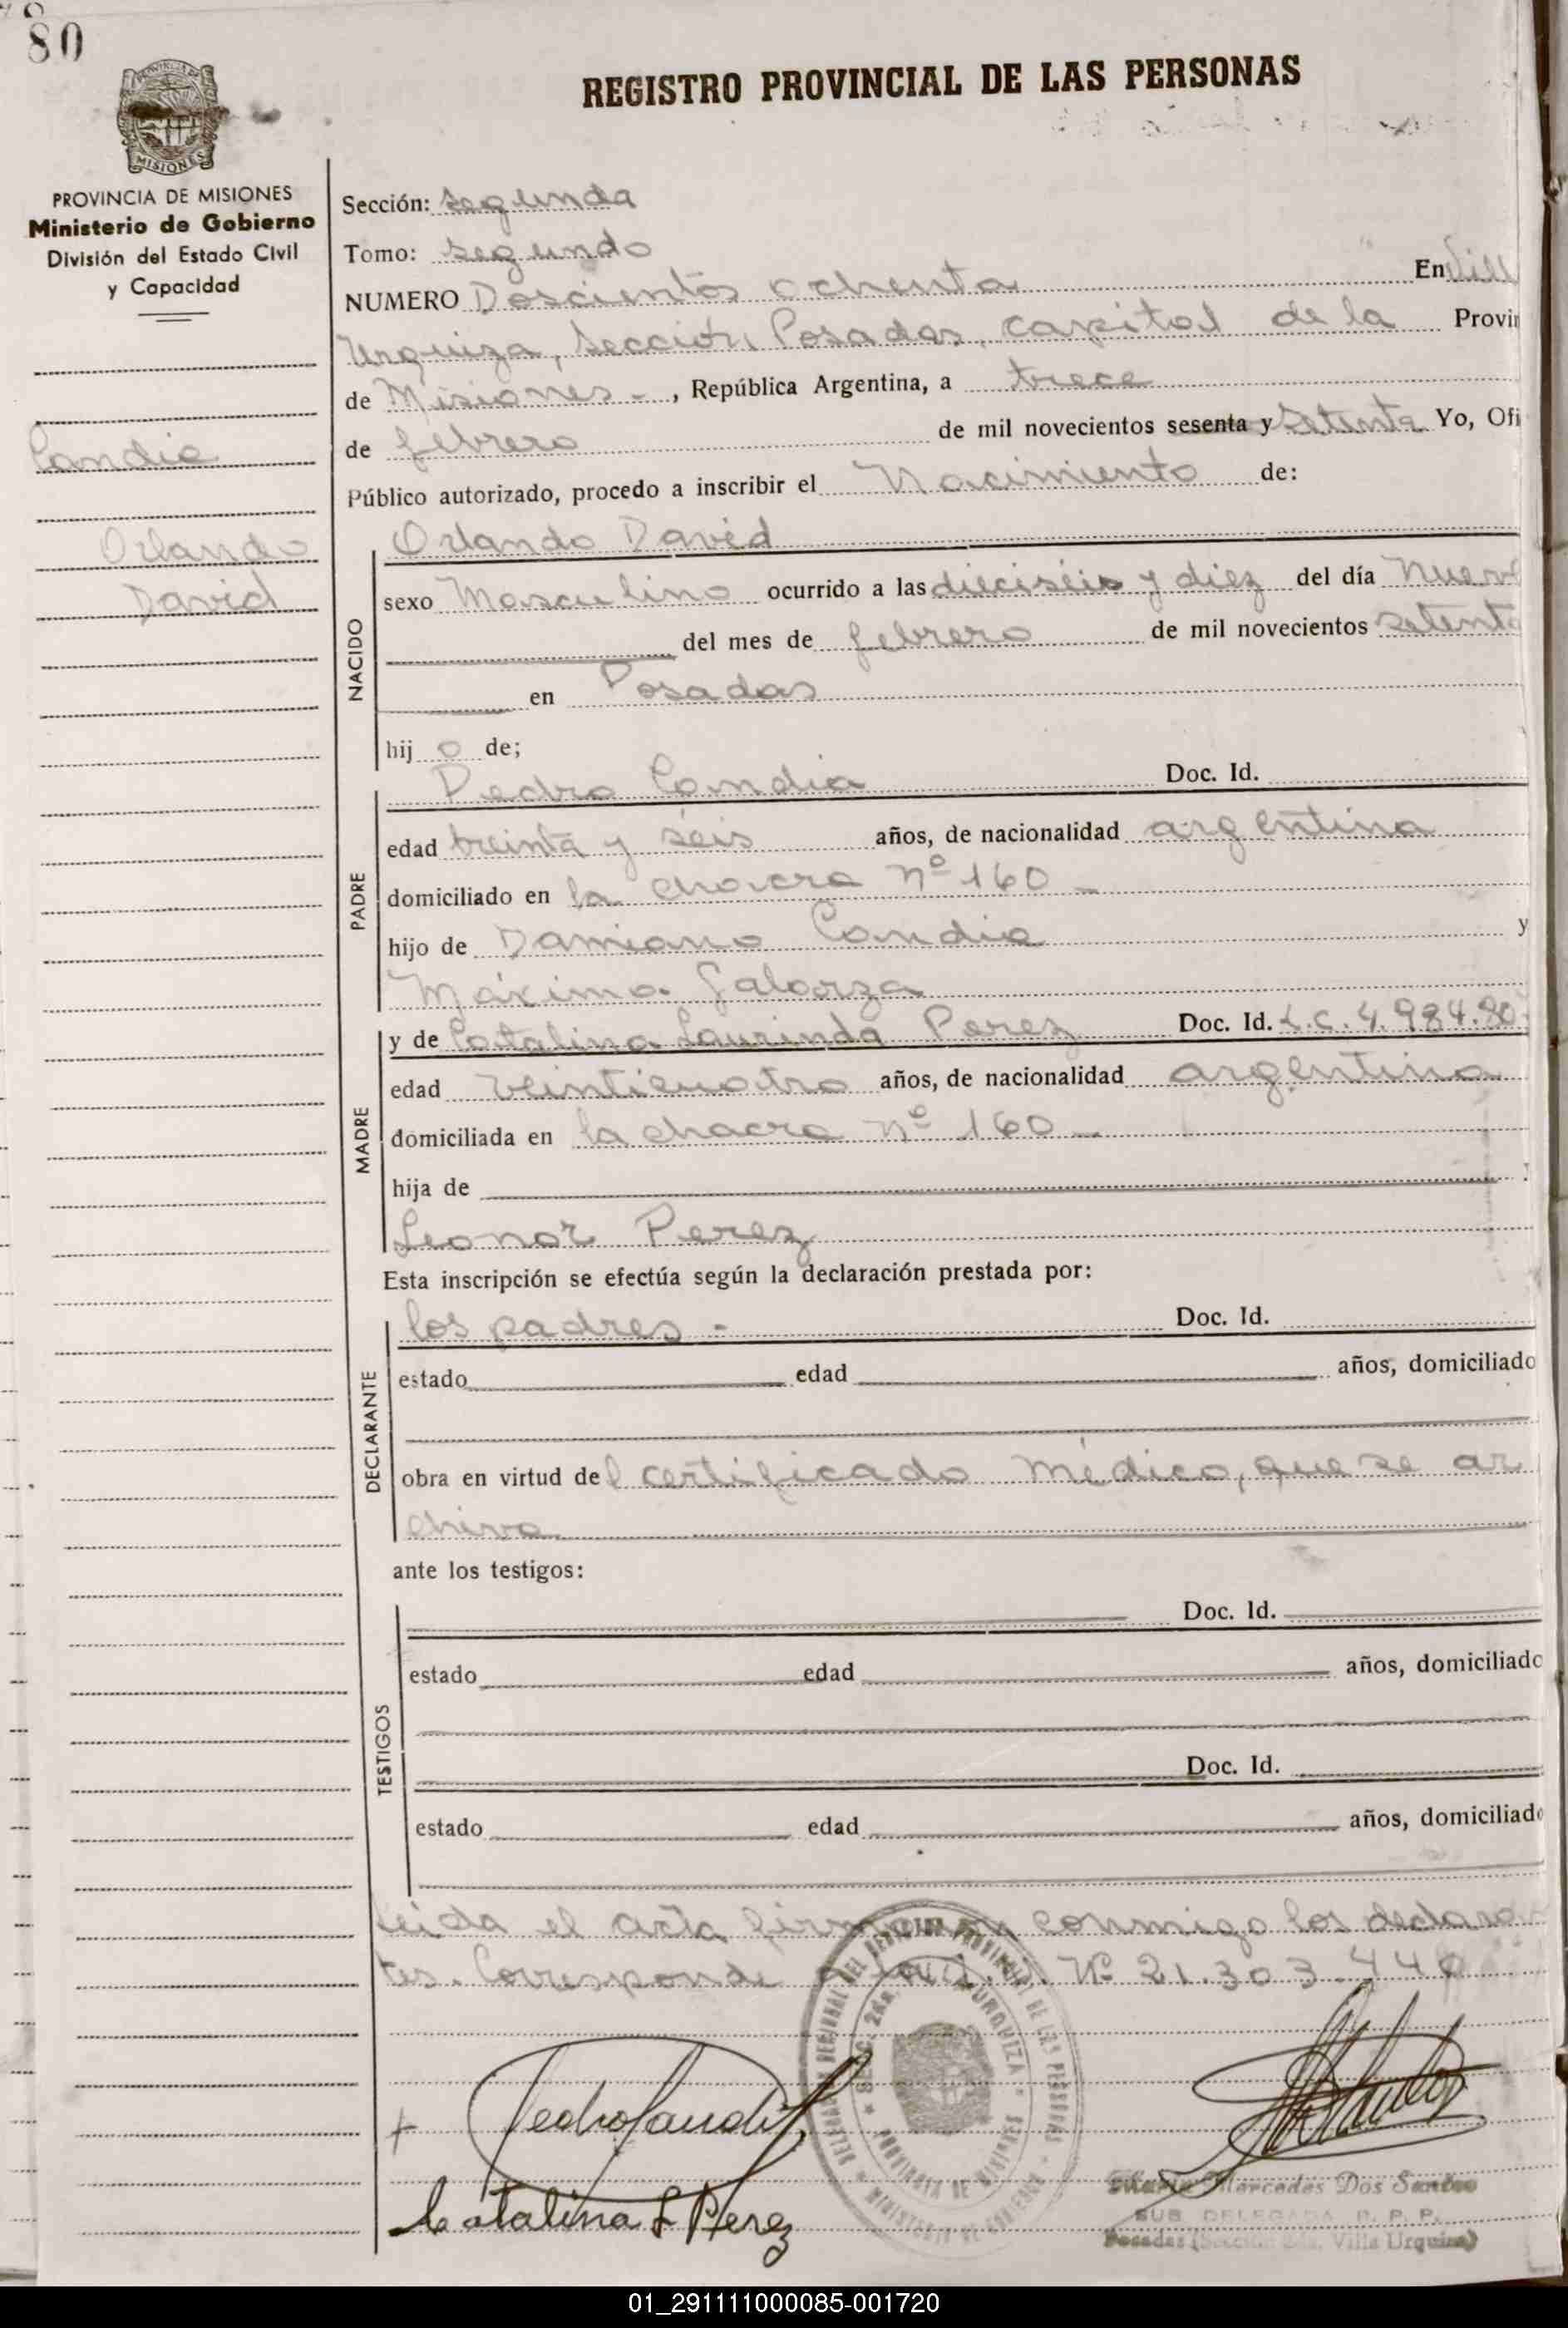 80
PROVINCIA DE MISIONES
Ministerio de Gobierno
División del Estado Civil
y Capacidad
Candia
Orlando
David
REGISTRO PROVINCIAL DE LAS PERSONAS
Sección: segunda
Tomo: segundo
NUMERO Doscientos ochenta En Vill
Urquiza, Sección, Posadas, capital de la Provin
de Misiones - , República Argentina, a trece
de febrero de mil novecientos sesenta y setenta Yo, Ofi
Público autorizado, procedo a inscribir el Nacimiento de:
NACIDO
Orlando David
sexo Masculino ocurrido a las dieciséis y diez del día Nueve
del mes de febrero de mil novecientos setenta
en Posadas
hij o de;
PADRE
Pedro Candia Doc. Id.
edad treinta y seis años, de nacionalidad argentina
domiciliado en la chacra nº 160 -
hijo de Damiano Candia y
Máxima Galarza
MADRE
y de Catalina Laurinda Perez Doc. Id. L.C. 4.984.80
edad veinticuatro años, de nacionalidad argentina
domiciliada en la chacra nº 160 -
hija de
Leonor Perez
Esta inscripción se efectúa según la declaración prestada por:
DECLARANTE
los padres - Doc. Id.
estado edad años, domiciliado
obra en virtud del certificado médico, que se ar
chiva
ante los testigos:
TESTIGOS
Doc. Id.
estado edad años, domiciliado
Doc. Id.
estado edad años, domiciliado
Leida el acta firman conmigo los declaran
tes. Corresponde Nº 21.303.440
Pedro Candia
Catalina L Perez
DELEGACION REGIONAL DEL REGISTRO PROVINCIAL DE LAS PERSONAS
SECC. 2da. URQUIZA
PROVINCIA DE MISIONES
MINISTERIO DE GOBIERNO
Maria Mercedes Dos Santos
SUB DELEGADA R. P. P.
Posadas (Sección 2da. Villa Urquiza)
01_291111000085-001720